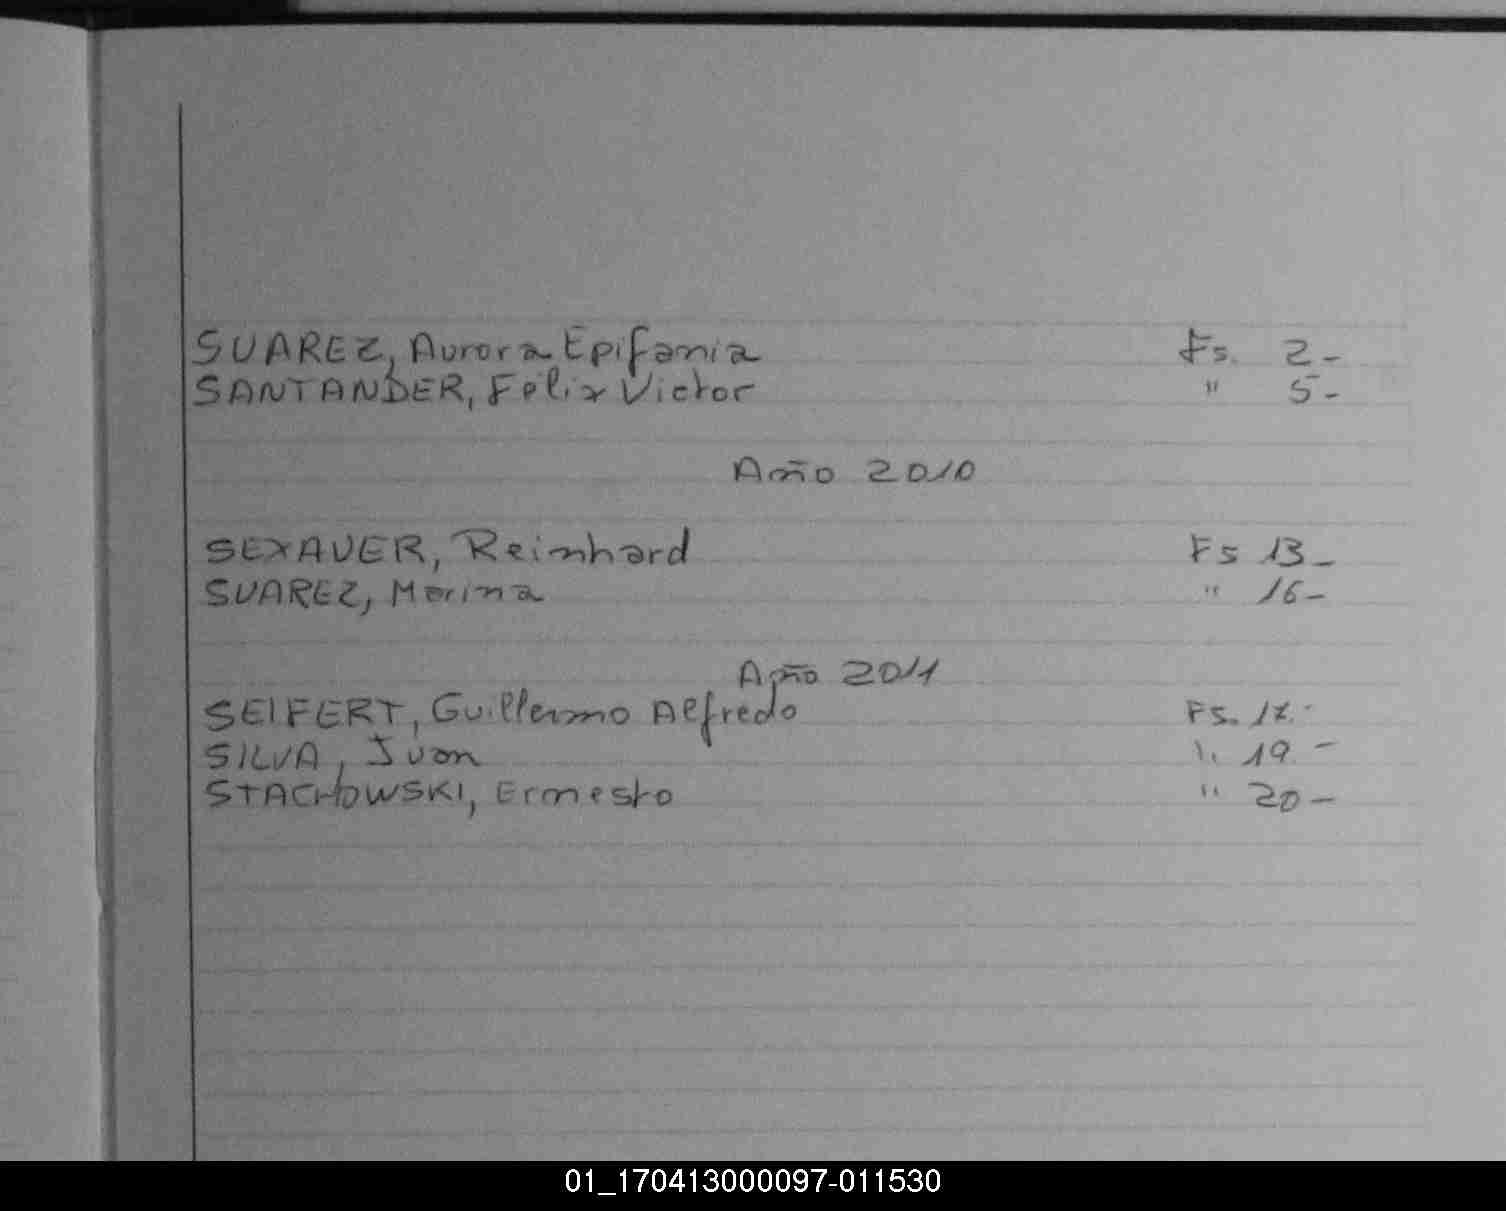 SUAREZ, Aurora Epifania Fs. 2-
SANTANDER, Felix Victor " 5-
Año 2010
SEXAUER, Reinhard Fs 13-
SUAREZ, Marina " 16-
Año 2011
SEIFERT, Guillermo Alfredo Fs. 17.-
SILVA, Juan " 19.-
STACHOWSKI, Ernesto " 20-
01_170413000097-011530